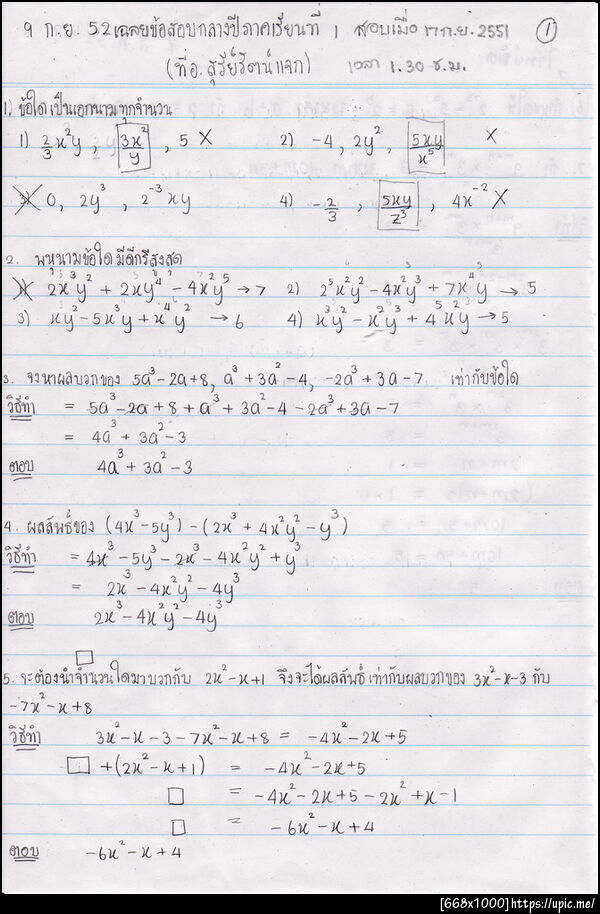 9 ก.ย. 52 เฉลยข้อสอบกลางปีภาคเรียนที่ 1 สอบเมื่อ 17 ก.ย. 2551 ①
(ที่ อ. สุรีย์รัตน์แจก) เวลา 1.30 ช.ม.
1) ข้อใดเป็นเอกนามทุกจำนวน
1) 2/3 x²y , 3x²/y , 5 X 2) -4, 2y², 5xy/x⁵ X
3) 0, 2y³, 2⁻³xy 4) -2/3, 5xy/z³, 4x⁻² X
2. พหุนามข้อใดมีดีกรีสูงสุด
1) 2x³y² + 2xy⁴ - 4x²y⁵ → 7 2) 2⁵x²y² - 4x²y³ + 7x⁴y → 5
3) xy² - 5x³y + x⁴y² → 6 4) x³y² - x²y³ + 4⁵x²y → 5
3. จงหาผลบวกของ 5a³-2a+8, a³+3a²-4, -2a³+3a-7 เท่ากับข้อใด
วิธีทำ = 5a³-2a+8+a³+3a²-4-2a³+3a-7
= 4a³+3a²-3
ตอบ 4a³+3a²-3
4. ผลลัพธ์ของ (4x³-5y³)-(2x³+4x²y²-y³)
วิธีทำ = 4x³-5y³-2x³-4x²y²+y³
= 2x³-4x²y²-4y³
ตอบ 2x³-4x²y²-4y³
5. จะต้องนำจำนวนใดมาบวกกับ 2x²-x+1 จึงจะได้ผลลัพธ์เท่ากับผลบวกของ 3x²-x-3 กับ
-7x²-x+8
วิธีทำ 3x²-x-3-7x²-x+8 = -4x²-2x+5
□ +(2x²-x+1) = -4x²-2x+5
□ = -4x²-2x+5-2x²+x-1
□ = -6x²-x+4
ตอบ -6x²-x+4
[668x1000]https://upic.me/